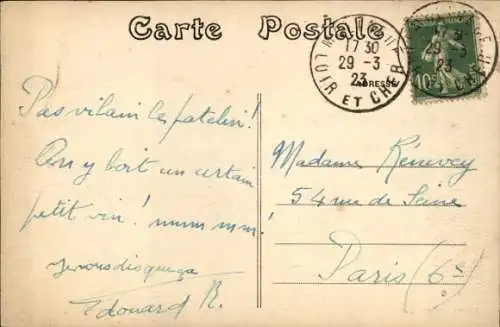 Carte Postale
17 30
29 - 3
23
LOIR ET CHER
17 30
29 - 3
23
10c
ADRESSE
Pas vilain le patelin!
On y boit un certain
petit vin! mum mm!
Je vous dis que ça
Edouard R.
Madame Rénevey
54 rue de Seine
Paris (6e)